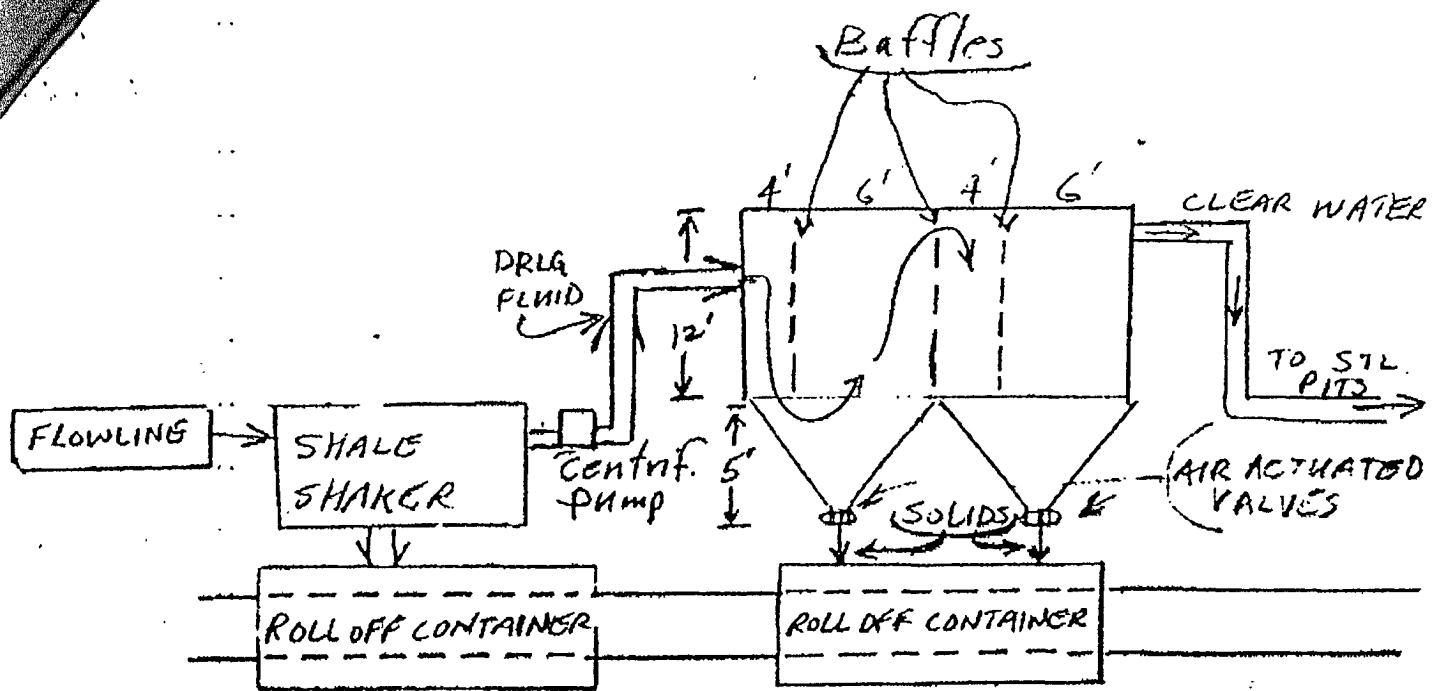 Baffles
4' 6' 4' 6'
CLEAR WATER
DRLG
FLUID
12'
TO STL.
PITS
FLOWLING
SHALE
SHAKER
Centrif.
pump
5'
AIR ACTUATED
VALVES
SOLIDS
ROLL OFF CONTAINER
ROLL OFF CONTAINER